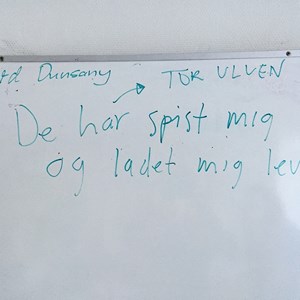 Dunsany → TOR ULVEN
De har spist mig
og ladet mig lev